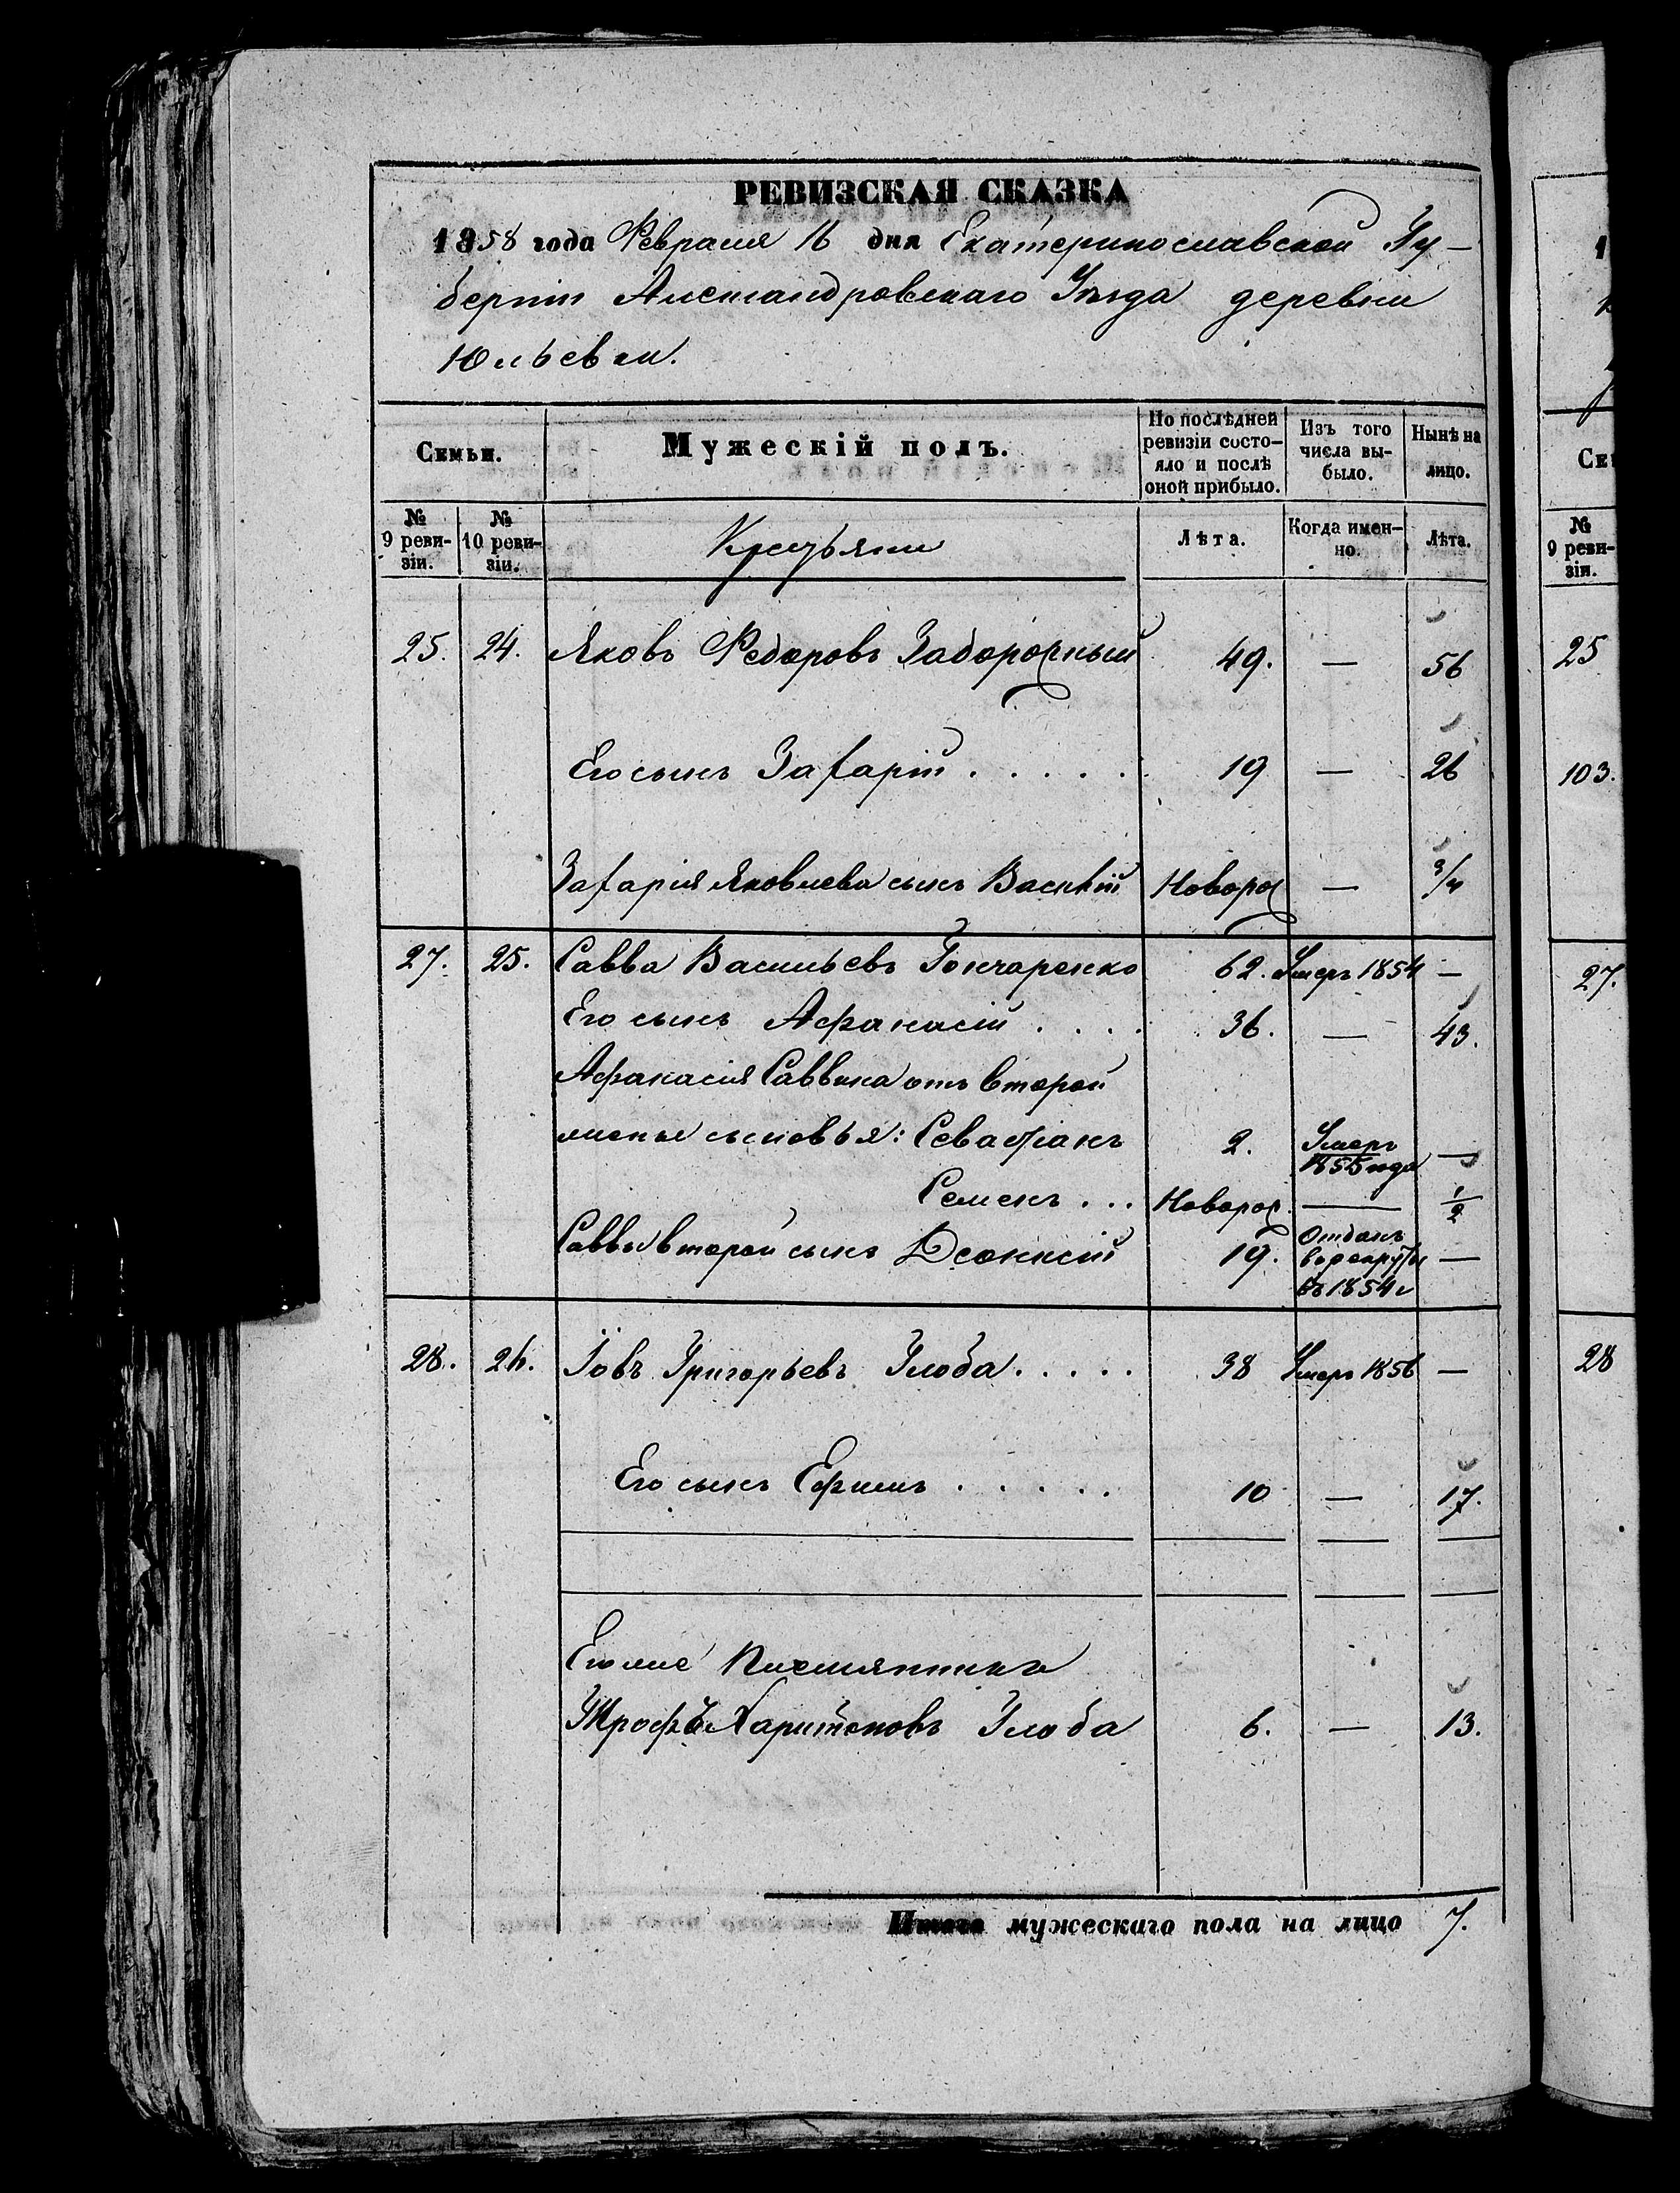 РЕВИЗСКАЯ СКАЗКА
1858 года Февраля 16 дня Екатеринославской Гу-
берніи Александровскаго Уѣзда деревни
Юльевки.
Семьи. Мужескій полъ. По послѣдней ревизіи состо-яло и послѣ оной прибыло. Изъ того числа вы-было. Нынѣ на лицо.
№ 9 реви-зіи. № 10 реви-зіи. Крестьяне Лѣта. Когда имен-но. Лѣта.
25. 24. Яковъ Федоровъ Заборожный 49. — 56
Его сынъ Захарій . . . . . 19 — 26
Захарія Яковлева сынъ Василій Новорож — 3/4
27. 25. Савва Васильевъ Гончаренко 62. Умеръ 1854 —
Его сынъ Афанасій . . . . 36. — 43.
Афанасія Саввина отъ второй
жены сыновья: Севастіанъ 2. Умеръ 1855 года —
Семенъ . . . Новорож. — 1/2
Саввы второй сынъ Діонисій 19. Отданъ въ рекруты въ 1854 г —
28. 26. Іовъ Григорьевъ Глоба . . . . . 38 Умеръ 1856 —
Его сынъ Ефимъ . . . . . 10 — 17.
Его же племянникъ
Харитоновъ Глоба 6. — 13.
Итого мужескаго пола на лицо 7.
1
Се
№ 9 реви-зіи.
25
103.
27.
28